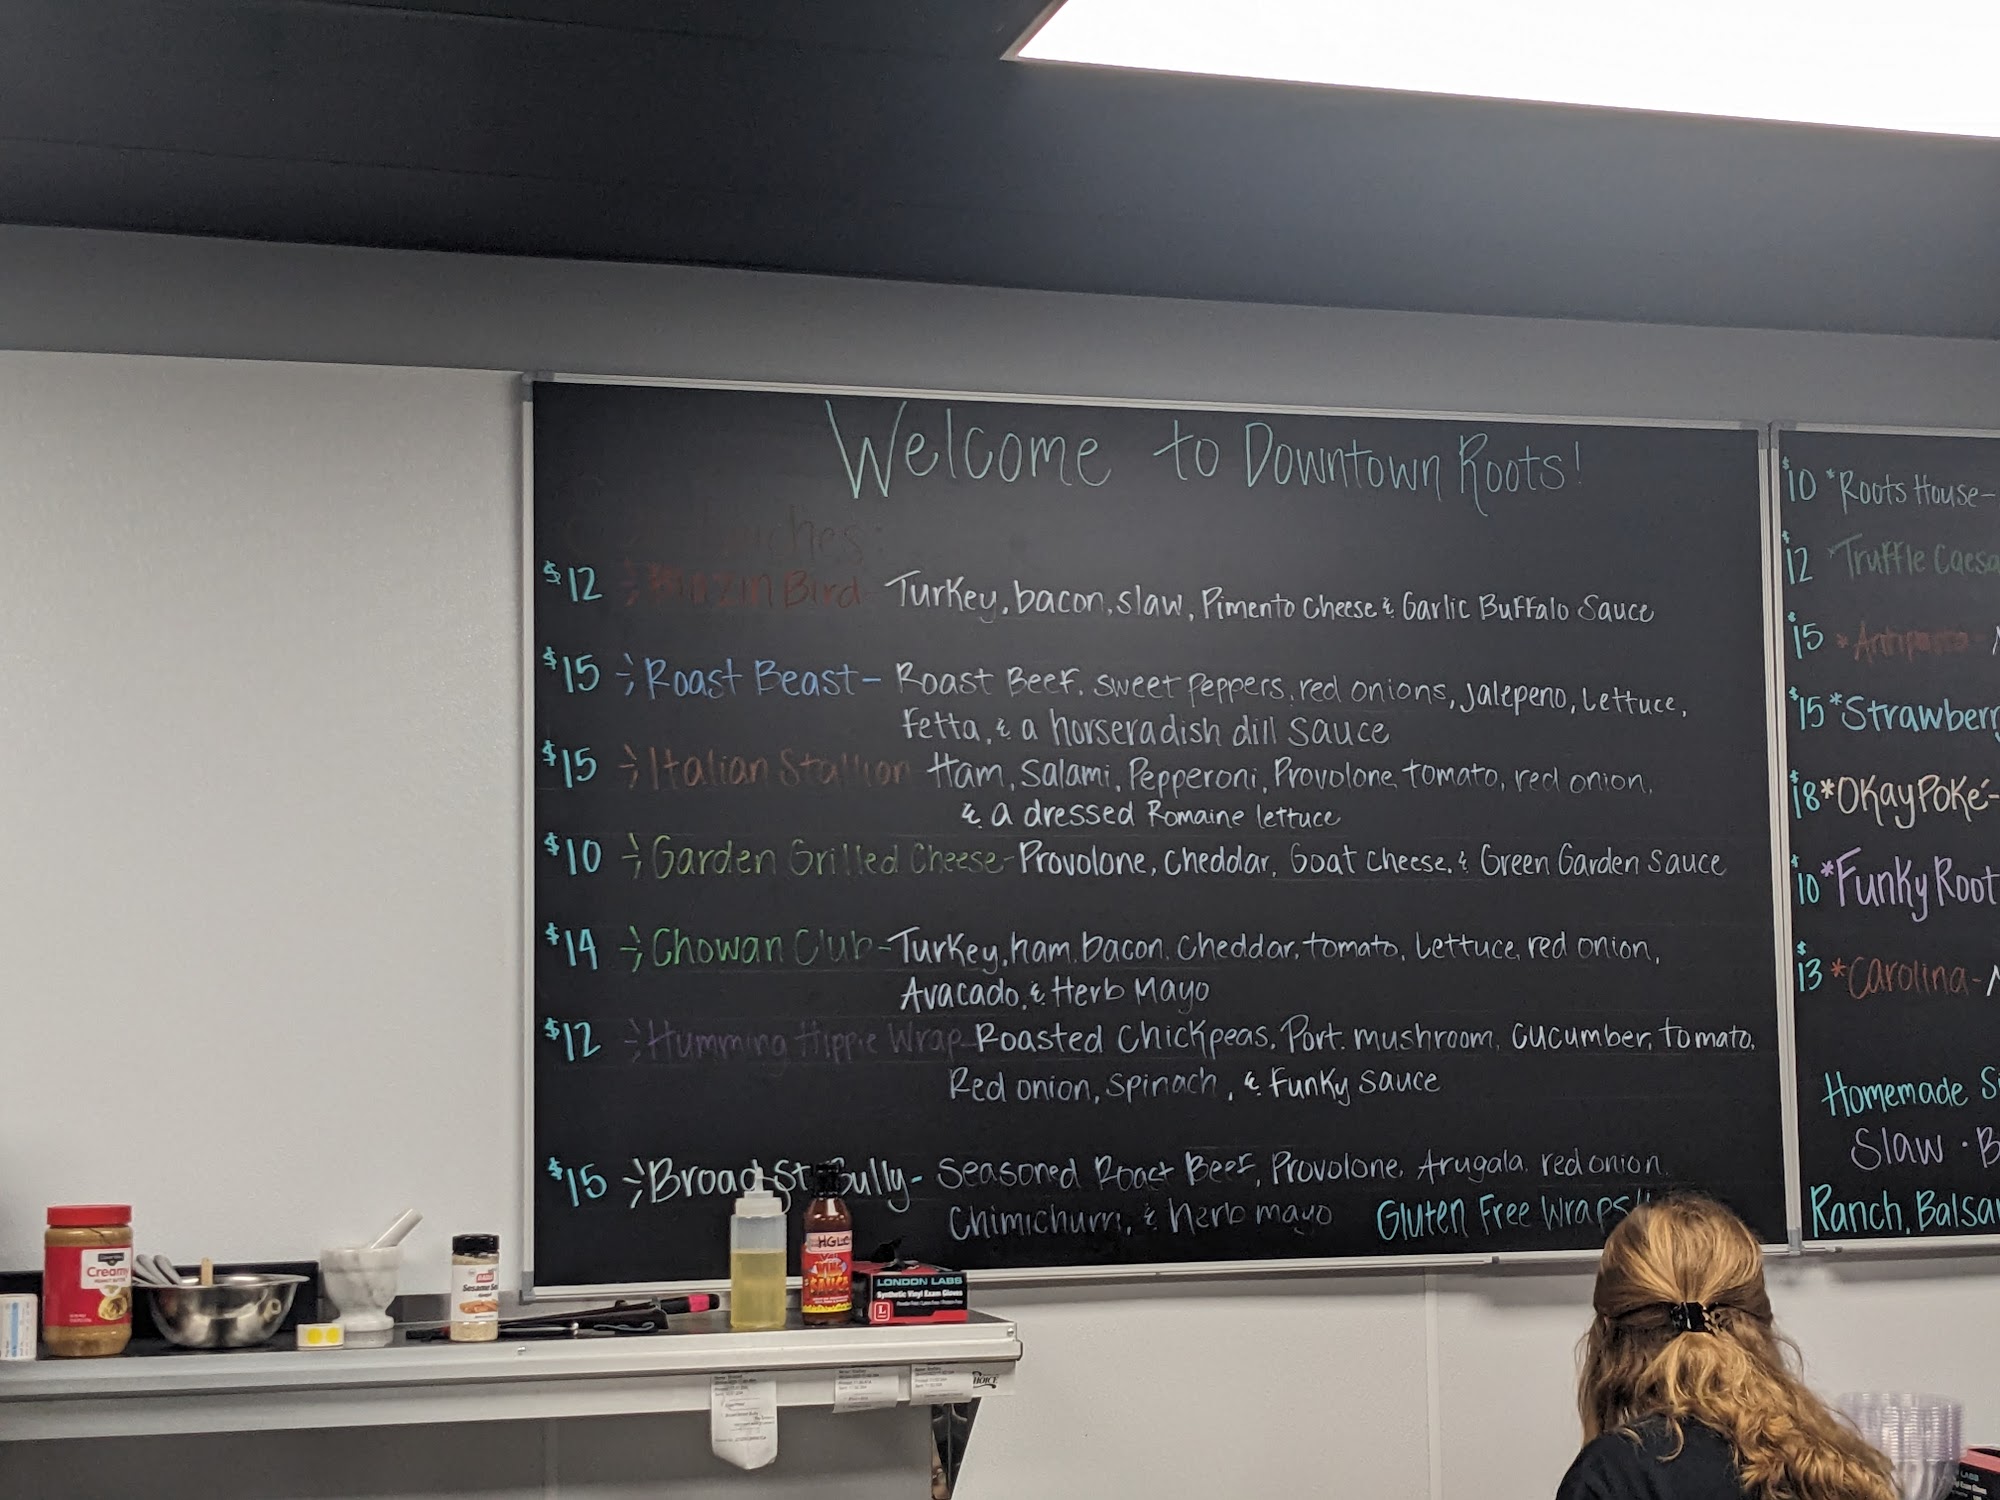 Welcome to Downtown Roots!
$12 Buzzin Bird Turkey, bacon, slaw, Pimento Cheese & Garlic Buffalo Sauce
$15 Roast Beast - Roast Beef, sweet peppers, red onions, Jalepeno, Lettuce,
fetta, & a horseradish dill sauce
$15 Italian Stallion Ham, Salami, Pepperoni, Provolone, tomato, red onion,
& a dressed Romaine lettuce
$10 Garden Grilled Cheese - Provolone, Cheddar, Goat Cheese, & Green Garden Sauce
$14 Chowan Club - Turkey, ham, bacon, Cheddar, tomato, Lettuce, red onion,
Avacado, & Herb Mayo
$12 Humming Hippie Wrap - Roasted Chickpeas, Port. mushroom, cucumber, tomato,
Red onion, spinach, & Funky Sauce
$15 Broad St. Bully - Seasoned Roast Beef, Provolone, Arugala, red onion,
Chimichurri, & herb mayo
Gluten Free Wraps!!
$10 *Roots House -
$12 *Truffle Caesa
$15 *Antipasto -
$15 *Strawberry
$18 *Okay Poké -
$10 *Funky Root
$13 *Carolina -
Homemade
Slaw ·
Ranch, Balsa
Creamy
PEANUT BUTTER
Sesame Se
HGLC
WING
SAUCE
LONDON LABS
Synthetic Vinyl Exam Gloves
L